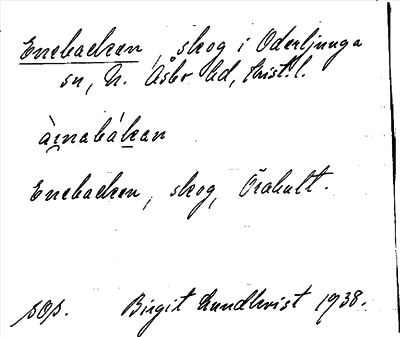 Enebacken, skog i Oderljunga
sn, N. Åsbo hd, Krist. l.
ànabákan
Enebacken, skog, Örahult.
sOp. Birgit Lundkvist 1938.